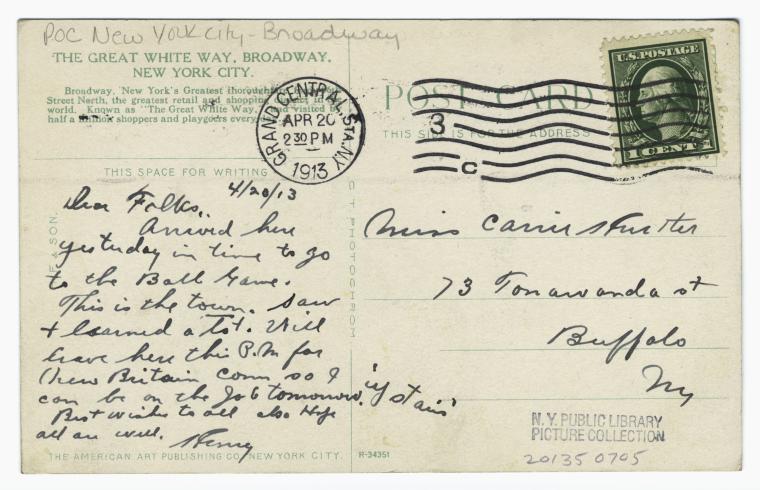 POC New York City - Broadway
THE GREAT WHITE WAY, BROADWAY,
NEW YORK CITY.
Broadway, New York's Greatest
Street North, the greatest retail and shopping
world. Known as "The Great White Way,
half a shoppers and playgoers
POST CARD
THIS SIDE IS FOR THE ADDRESS
THIS SPACE FOR WRITING
GRAND CENTRAL STA. N.Y.
APR 20
2 30 PM
1913
3
C
U.S. POSTAGE
1 CENT
& SON.
4/20/13
Dear Folks,
Arrived here
yesterday in time to go
to the Ball Game.
This is the town. Saw
+ learned a lot. Will
leave here this P.M for
New Britain Conn so I
can be on the Job tomorrow.
Best wishes to all also Hope
all are well. Henry
Miss Carrie
73 Tonawanda st
Buffalo
Ny
N.Y. PUBLIC LIBRARY
PICTURE COLLECTION
20135 0705
THE AMERICAN ART PUBLISHING CO. NEW YORK CITY. R-34351